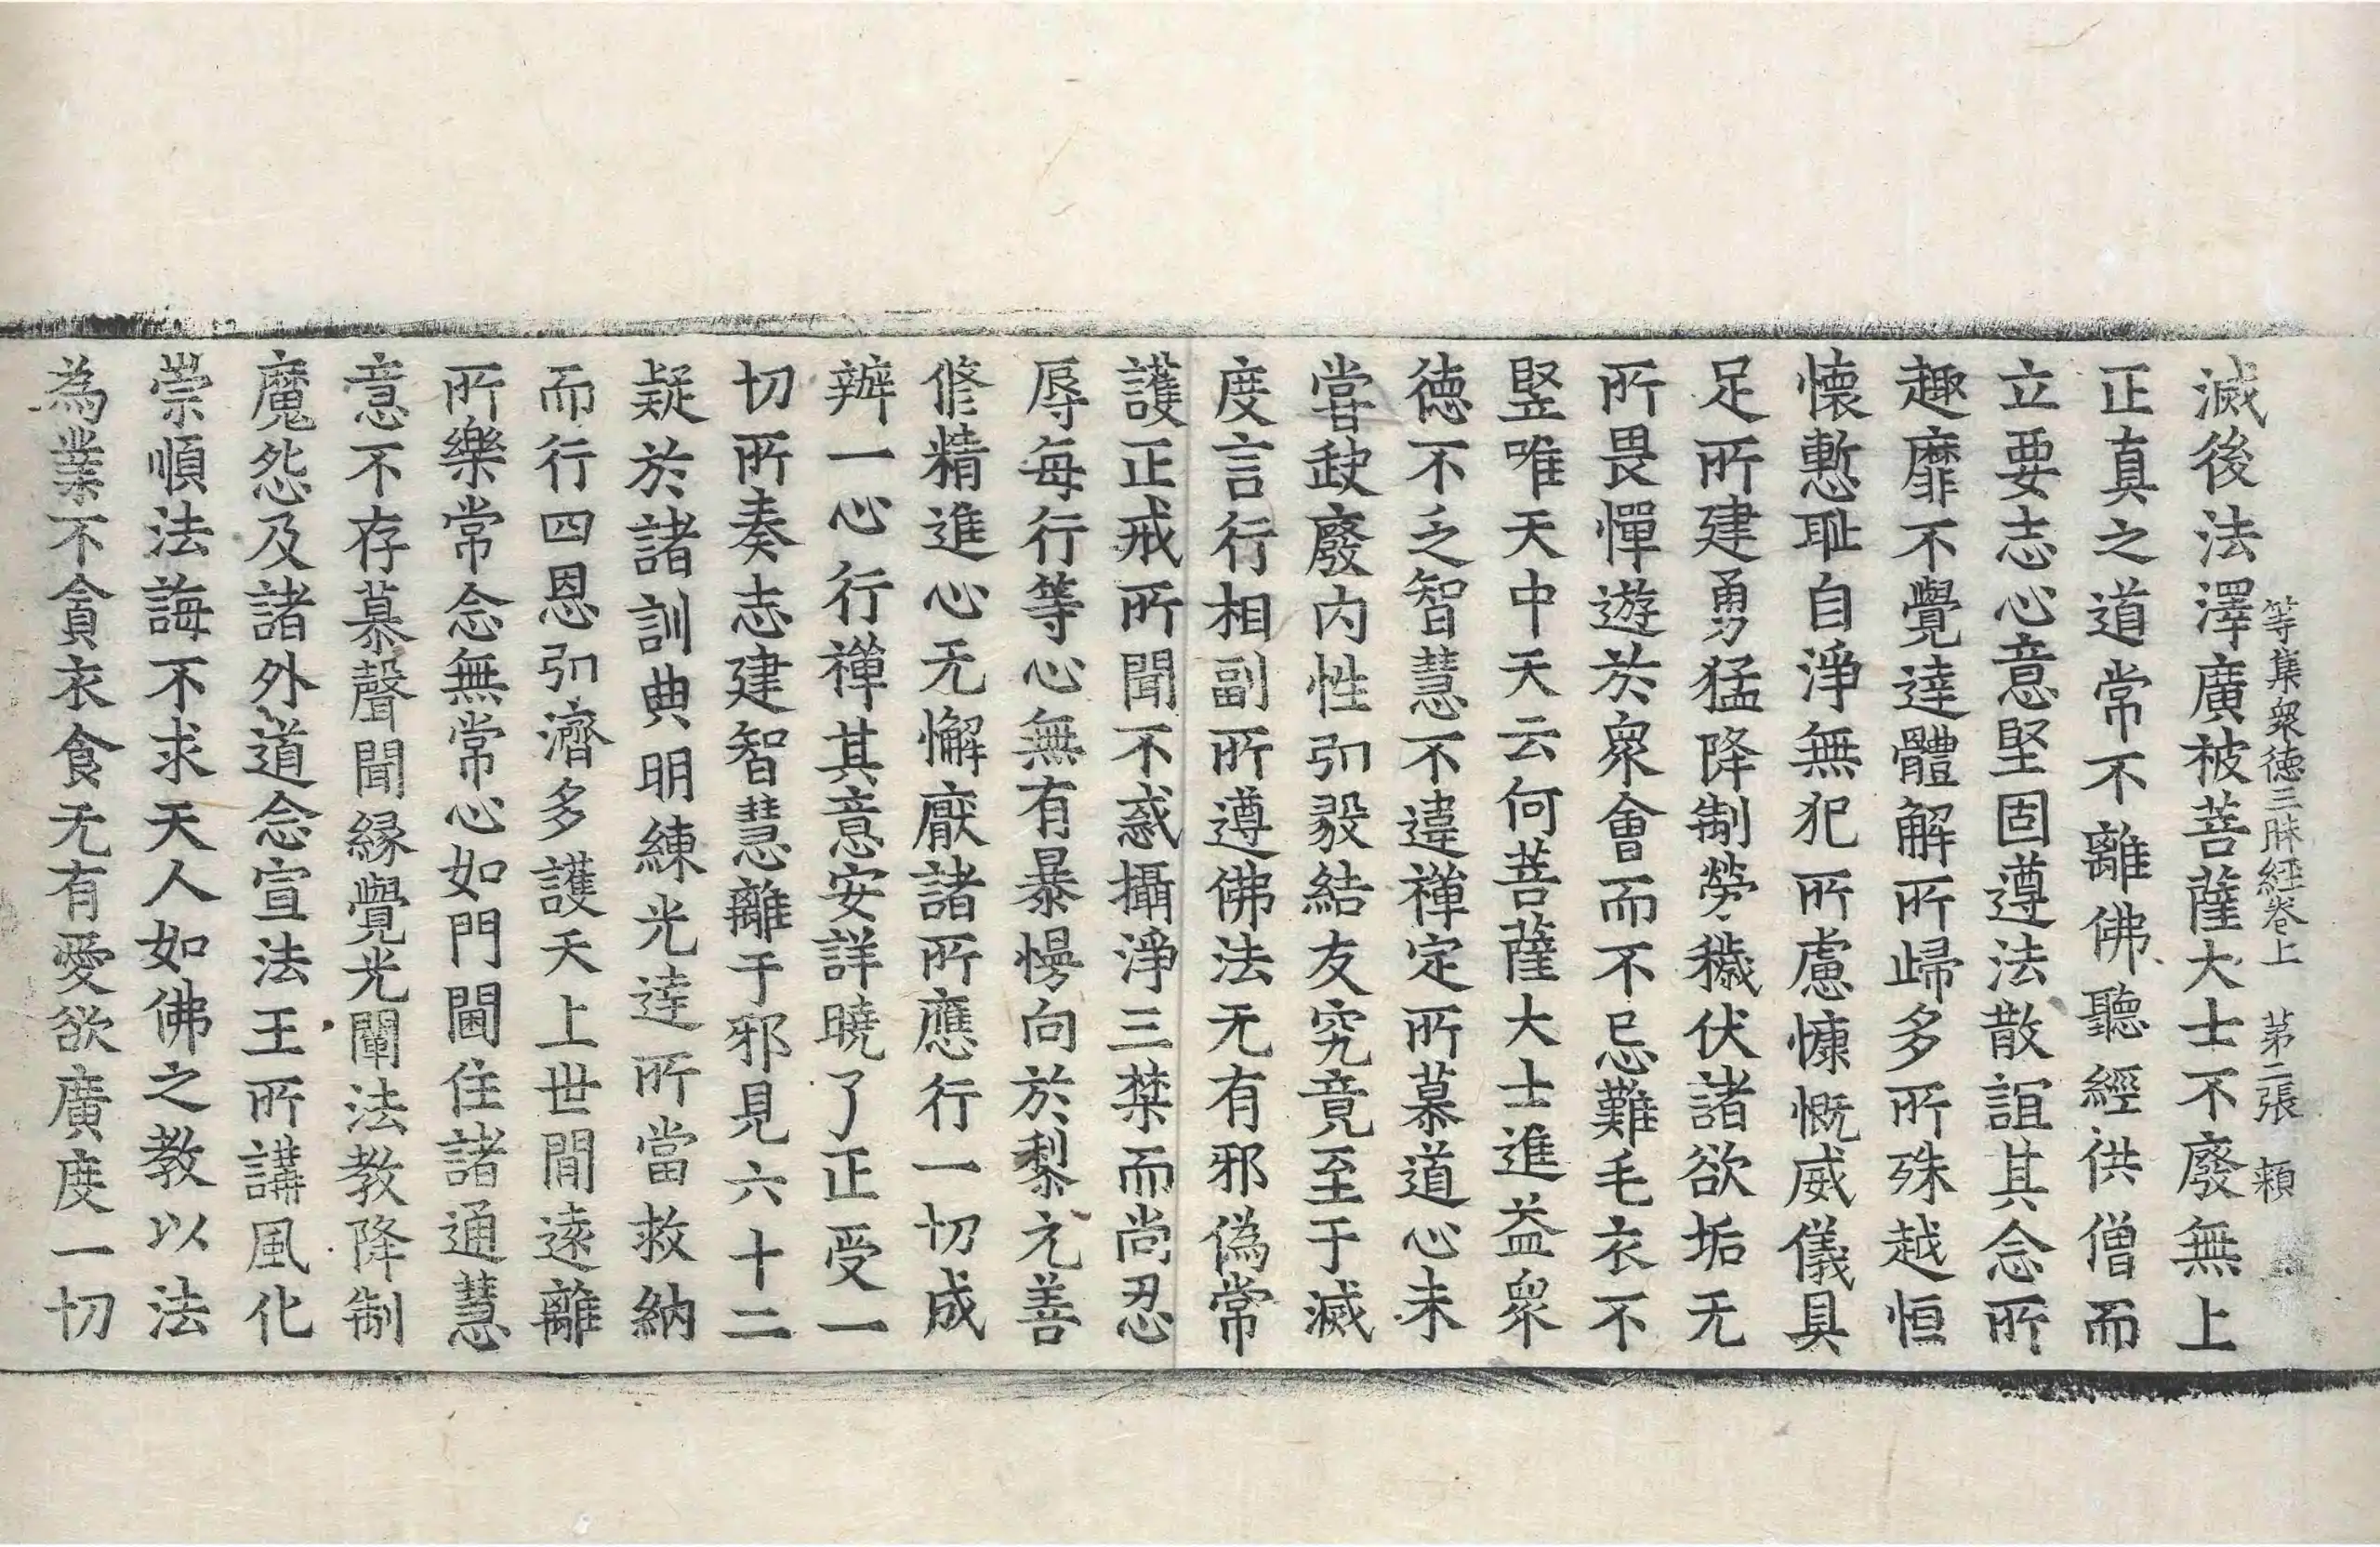 等集衆德三昧經卷上　第二張　頼
滅後法澤廣被菩薩大士不廢無上
正真之道常不離佛聽經供僧而
立要志心意堅固遵法散誼其念所
趣靡不覺達體解所歸多所殊越恒
懷慙耻自淨無犯所慮慷慨威儀具
足所建勇猛降制勞穢伏諸欲垢无
所畏憚遊於衆會而不忌難毛衣不
竪唯天中天云何菩薩大士進益衆
德不乏智慧不違禪定所慕道心未
甞缺廢内性引毅結友究竟至于滅
度言行相副所遵佛法无有邪僞常
護正戒所聞不惑攝淨三業而尚忍
辱每行等心無有暴慢向於黎元善
修精進心无懈厭諸所應行一切成
辦一心行禪其意安詳曉了正受一
切所奏志建智慧離于邪見六十二
疑於諸訓典明練光達所當救納
而行四恩引濟多護天上世間遠離
所樂常念無常心如門閫住諸通慧
意不存慕聲聞緣覺光闡法教降制
魔怨及諸外道念宣法王所講風化
崇順法誨不求天人如佛之教以法
為業不貪衣食无有愛欲廣度一切